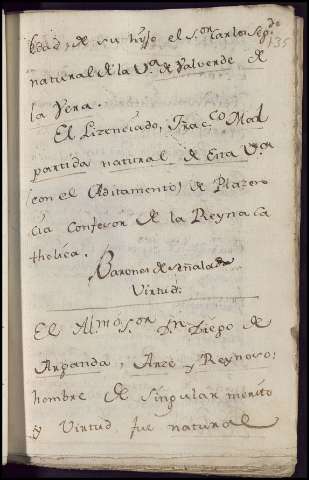 edad, de su hijo el S.or Carlos Seg.do
135
natural de la V.a de Valverde de
la Vera.
El Lizenciado, Fra.co Mal
partida natural de Esta V.a
(con el Aditamento) de Plazen
cia Confesor de la Reyna ca
tholica.
Barones de señalada
Virtud.
El Almo S.or D.n Diego de
Arganda, Arze y Reynoso:
hombre de singular merito
y Virtud fue natural